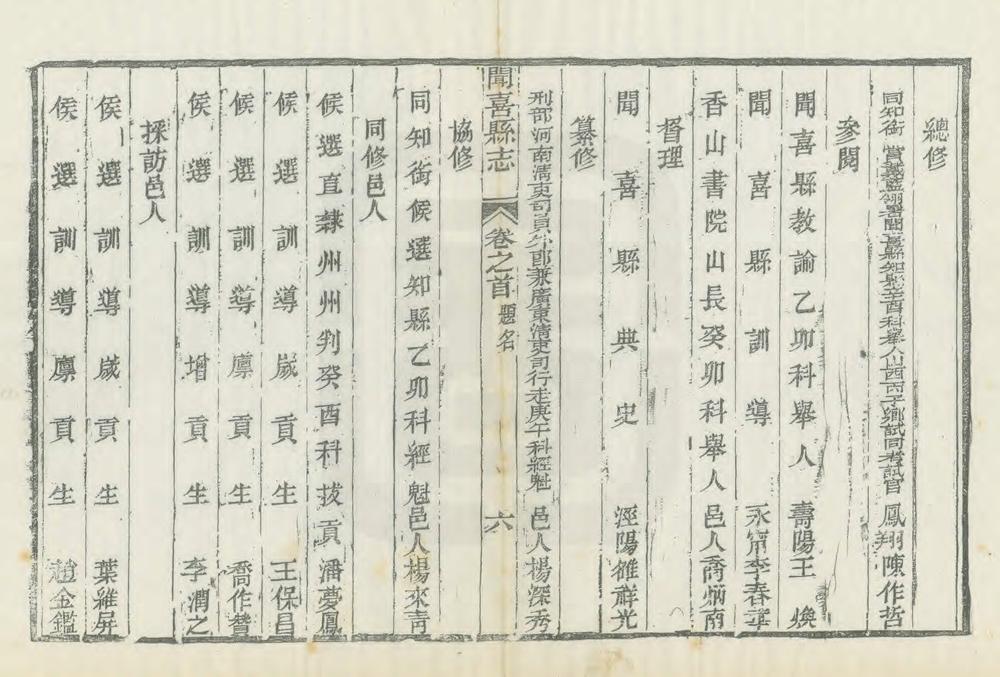 總修
同知銜 賞戴藍翎署聞喜縣知縣辛酉科舉人山西丙子鄉試同考試官 鳳翔陳作哲
參閱
聞喜縣教諭乙卯科舉人 壽陽王 煥
聞喜縣訓導 永甯李春華
香山書院山長癸卯科舉人 邑人喬炳南
督理
聞喜縣典史 涇陽雒祥光
纂修
刑部河南清吏司員外郎兼廣東清吏司行走庚午科經魁 邑人楊深秀
聞喜縣志 卷之首 題名 六
協修
同知銜候選知縣乙卯科經魁邑人楊來青
同修邑人
候選直隸州州判癸酉科拔貢潘夢鳳
候選訓導歲貢生 王保昌
候選訓導廩貢生 喬作
候選訓導增貢生 李潤之
採訪邑人
候選訓導歲貢生 葉維屏
候選訓導廩貢生 趙金鑑